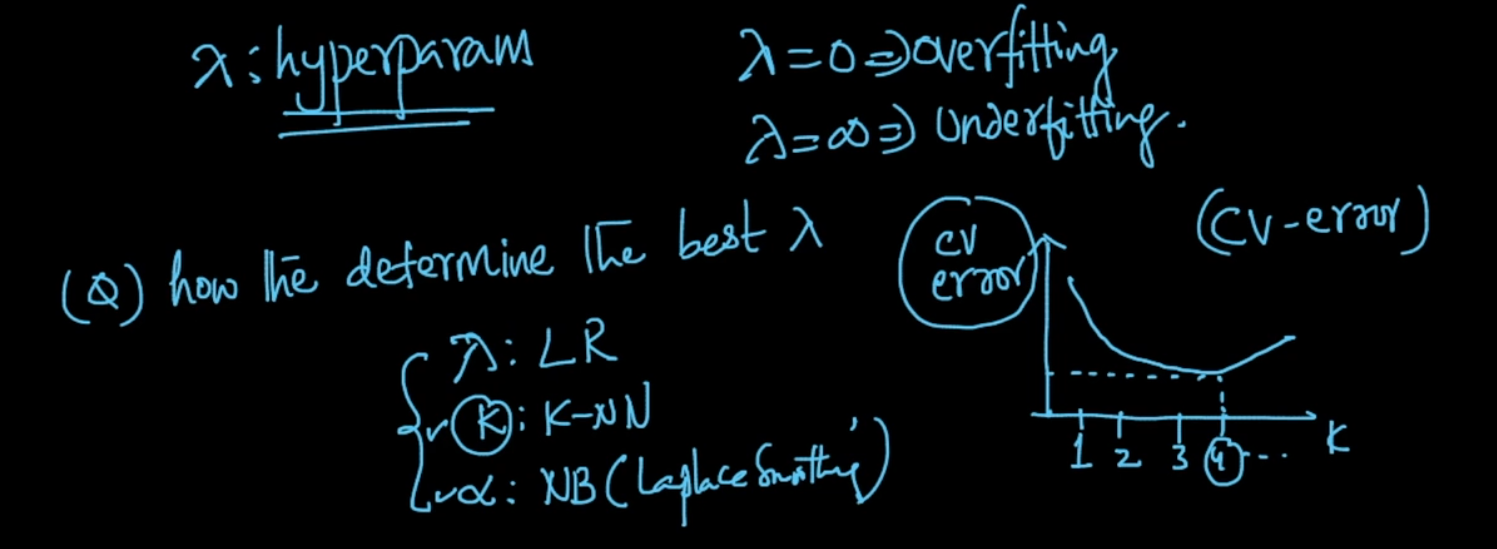 λ: hyperparam
λ=0 ⇒ overfitting
λ=∞ ⇒ Underfitting.
(Q) how the determine the best λ
λ: LR
K: K-NN
α: NB (Laplace Smoothing)
(CV-error)
CV
error
1 2 3 4 ...
K